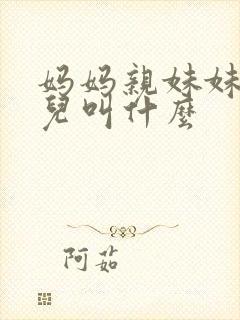 妈妈親妹妹
兒叫什麼
阿茹